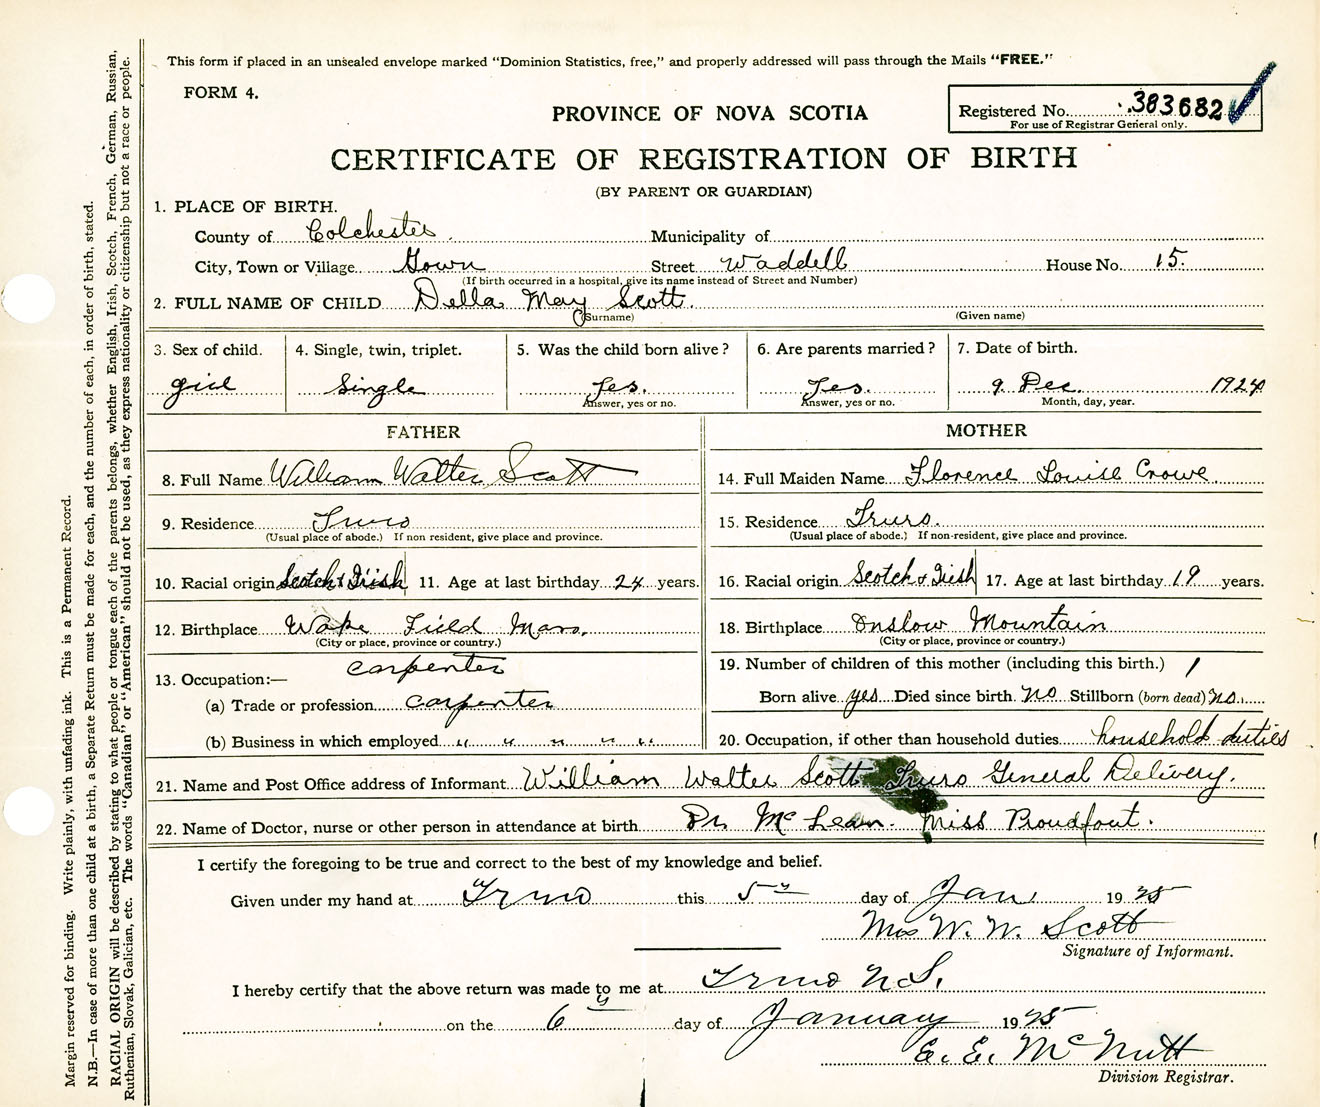 This form if placed in an unsealed envelope marked "Dominion Statistics, free," and properly addressed will pass through the Mails "FREE."
FORM 4.
PROVINCE OF NOVA SCOTIA
Registered No. 383682
For use of Registrar General only.
CERTIFICATE OF REGISTRATION OF BIRTH
(BY PARENT OR GUARDIAN)
1. PLACE OF BIRTH.
County of Colchester Municipality of
City, Town or Village Town Street Waddell House No. 15.
(If birth occurred in a hospital, give its name instead of Street and Number)
2. FULL NAME OF CHILD Della May Scott.
(Surname) (Given name)
3. Sex of child. 4. Single, twin, triplet. 5. Was the child born alive? 6. Are parents married? 7. Date of birth.
girl Single Yes. Yes. 9. Dec. 1924
Answer, yes or no. Answer, yes or no. Month, day, year.
FATHER MOTHER
8. Full Name William Walter Scott 14. Full Maiden Name Florence Louise Crowe.
9. Residence Truro 15. Residence Truro.
(Usual place of abode.) If non resident, give place and province. (Usual place of abode.) If non-resident, give place and province.
10. Racial origin Scotch & Irish 11. Age at last birthday 24 years. 16. Racial origin Scotch & Irish 17. Age at last birthday 19 years.
12. Birthplace Wake Field Mass. 18. Birthplace Onslow Mountain
(City or place, province or country.) (City or place, province or country.)
13. Occupation:— carpenter 19. Number of children of this mother (including this birth.) 1
(a) Trade or profession carpenter Born alive yes Died since birth no Stillborn (born dead) no.
(b) Business in which employed " " " " " " 20. Occupation, if other than household duties household duties
21. Name and Post Office address of Informant William Walter Scott Truro General Delivery.
22. Name of Doctor, nurse or other person in attendance at birth Dr. McLean. Miss Proudfout.
I certify the foregoing to be true and correct to the best of my knowledge and belief.
Given under my hand at Truro this 5th day of Jan. 1925
Mrs W. W. Scott
Signature of Informant.
I hereby certify that the above return was made to me at Truro N.S.
on the 6th day of January 1925
E. E. McNutt
Division Registrar.
Margin reserved for binding. Write plainly, with unfading ink. This is a Permanent Record.
N.B.—In case of more than one child at a birth, a Separate Return must be made for each, and the number of each, in order of birth, stated.
RACIAL ORIGIN will be described by stating to what people or tongue each of the parents belongs, whether English, Irish, Scotch, French, German, Russian,
Ruthenian, Slovak, Galician, etc. The words "Canadian" or "American" should not be used, as they express nationality or citizenship but not a race or people.